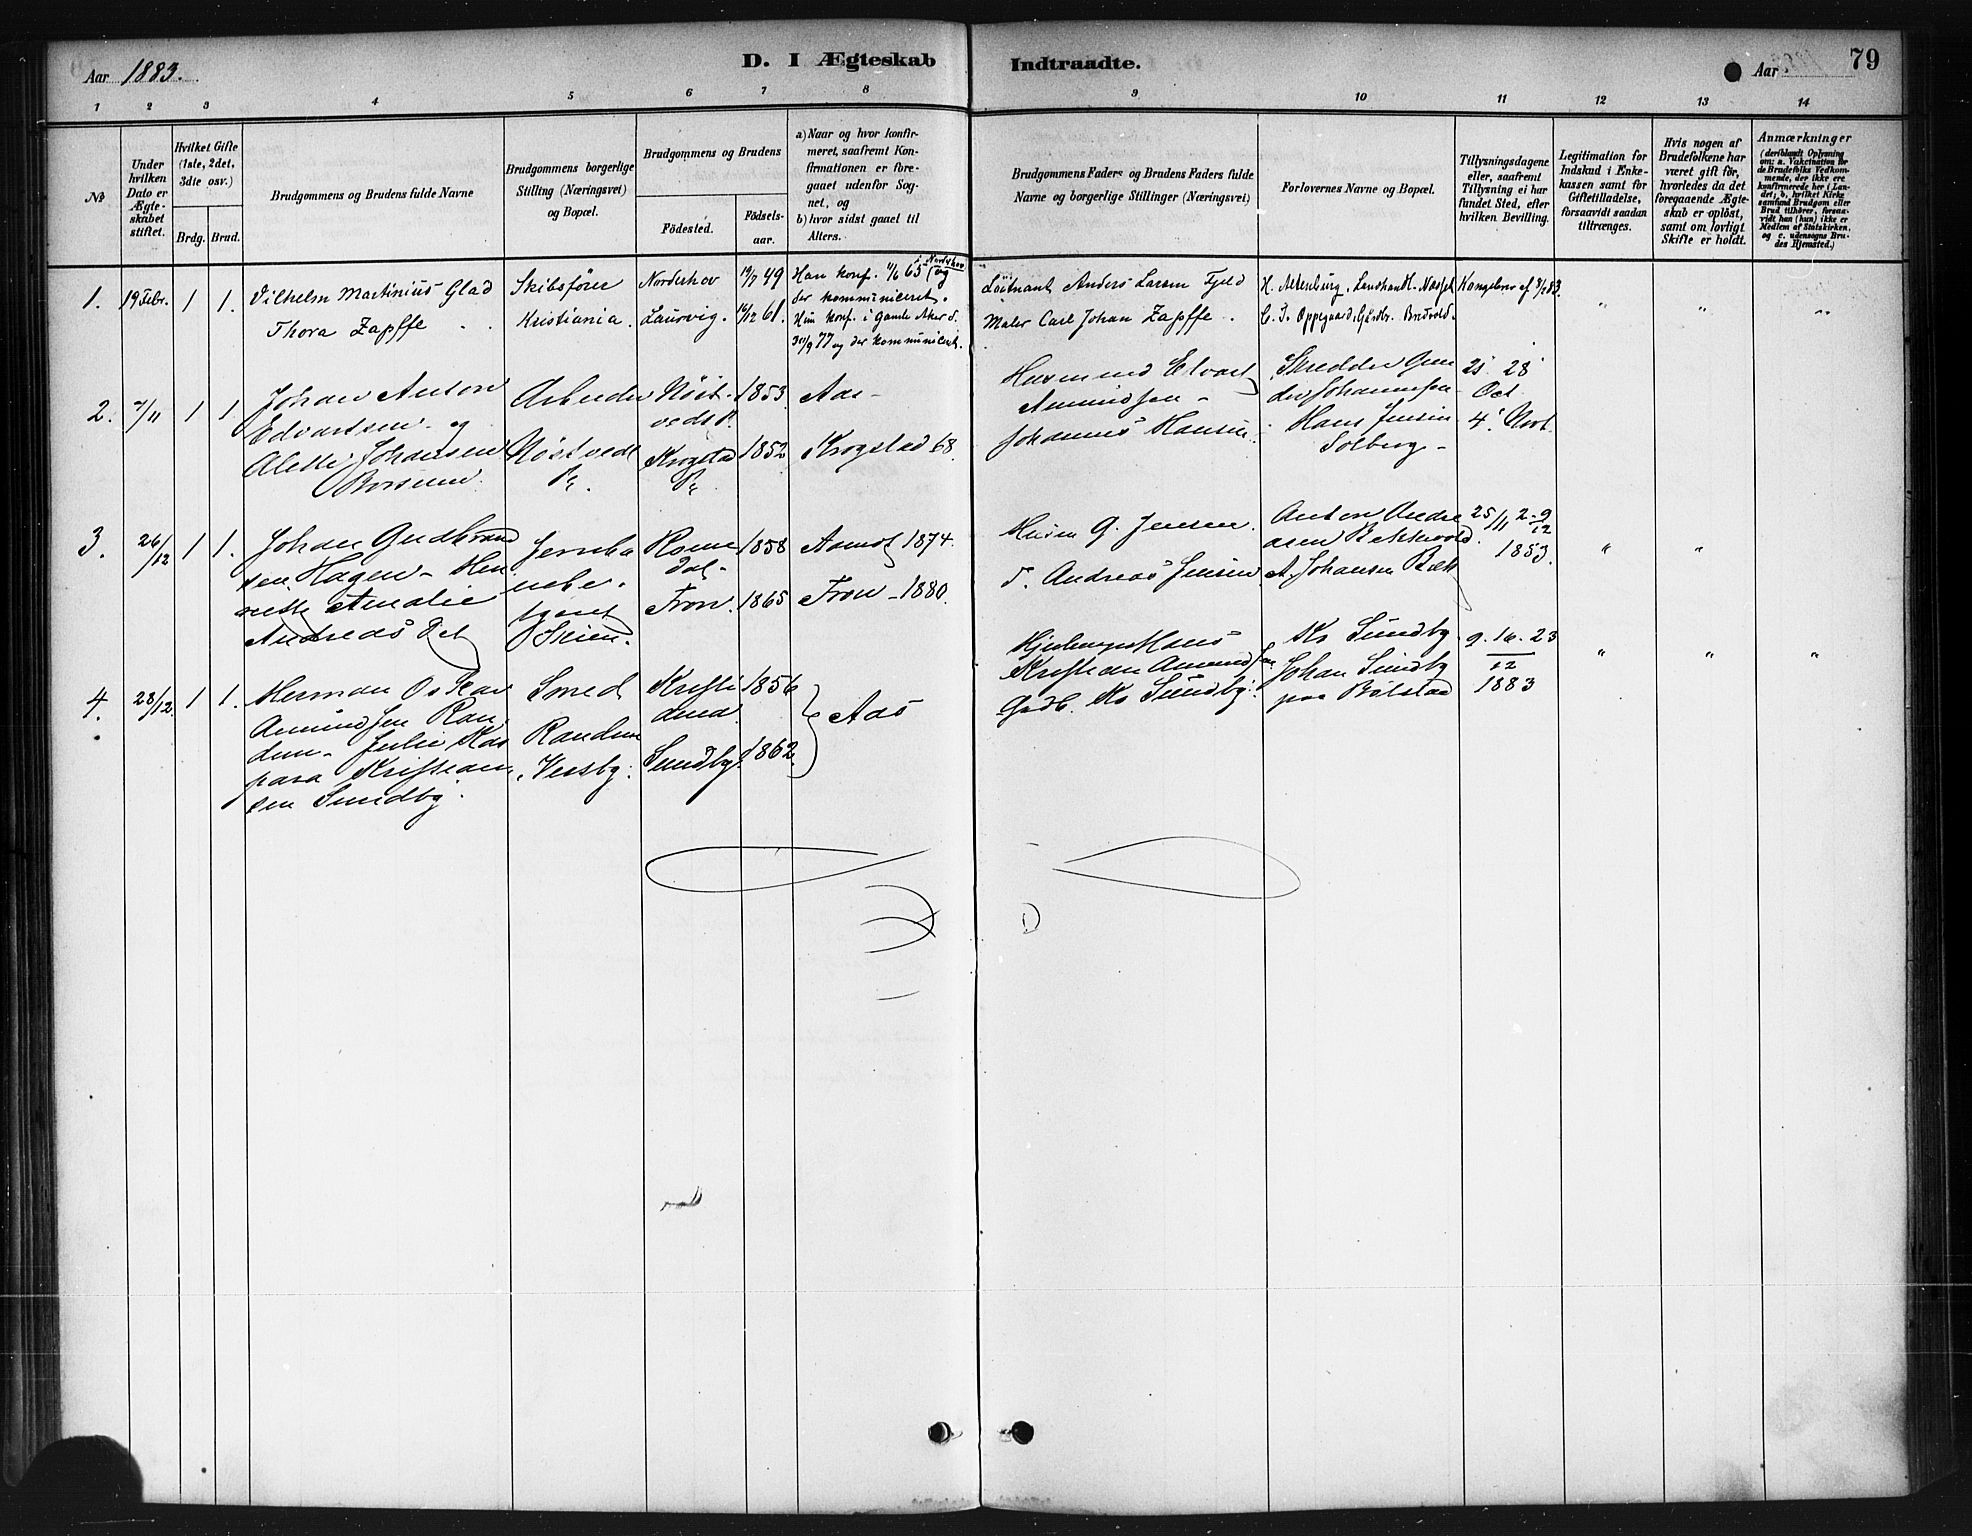 Aar 1883.
D. I Ægteskab Indtraadte.
Aar
79
1 2 3 4 5 6 7 8 9 10 11 12 13 14
No
Under hvilken Dato er Ægteskabet stiftet.
Hvilket Gifte (1ste, 2det, 3die osv.)
Brdg. Brud.
Brudgommens og Brudens fulde Navne
Brudgommens borgerlige Stilling (Næringsvei) og Bopæl.
Brudgommens og Brudens
Födested.
Födselsaar.
a) Naar og hvor konfirmeret, saafremt Konfirmationen er foregaaet udenfor Sognet, og
b) hvor sidst gaaet til Alters.
Brudgommens Faders og Brudens Faders fulde Navne og borgerlige Stillinger (Næringsvei)
Forlovernes Navne og Bopæl.
Tillysningsdagene eller, saafremt Tillysning ei har fundet Sted, efter hvilken Bevilling.
Legitimation for Indskud i Enkekassen samt for Giftetilladelse, forsaavidt saadan tiltrænges.
Hvis nogen af Brudefolkene har været gift før, hvorledes da det foregaaende Ægteskab er opløst, samt om lovligt Skifte er holdt.
Anmærkninger
(deriblandt Oplysning om: a. Vakcination for de Brudefolks Vedkommende, der ikke ere konfirmerede her i Landet; b. hvilket Kirkesamfund Brudgom eller Brud tilhører, forsaavidt han (hun) ikke er Medlem af Statskirken, og c. udensogns Brudes Hjemsted.)
1. 19 Febr. 1 1. Vilhelm Martinius Glad
Thora Zapffe
Skibsfører
Kristiania.
Norderhov 19/7 49
Laurvig. 16/12 61.
Han konf. 4/6 65 i Norderhov og
der kommuniceret.
Hun konf. i Gamle Aker d.
30/9 77 og der kommuniceret.
Löitnant Anders Larsen Fjeld
Maler Carl Johan Zapffe
H. Altenburg, Landhandl. Næsset
C. J. Oppegaard, Gårdbr. Bredvold.
Kongebrev af 8/2 83.
" " "
2. 7/11 1 1 Johan Anton
Edvartsen og
Alette Johansen
Borsum
Arbeider
Nöstvedt
Pr.
Nöst-
vedt P. 1853
Krogstad 1852
Pr.
Aas
Krogstad 68.
Husmand Edvart
Amundsen
Johannes Hansen
Skredder Gun
der Johannesen
Hans Jensen
Solberg
21 28
Oct
4 Novb.
3. 26/12 1 1. Johan Gudbrand
sen Hagen - Hen
riette Amalie
Andreas Det
Jernba
nebe-
tjent
Skien.
Roms
dal 1858
Fron. 1865
Aamot 1874.
Fron - 1880.
Husm G. Jensen.
d. Andreas Jensen
Anton Andre
asen Bekkevold.
A. Johansen Bæk
25/11 2-9/12
1883.
" "
4. 28/12. 1 1. Herman Oskar
Amundsen Ran
dem - Julie Kas
para Kristian
sen Sundby.
Smed
Randem
Vestby.
Kristi 1856
ania
Sundby. 1862.
Aas
Hans
Kristian Amundsen
Gdb. Kr Sundby.
Kr Sundby
Johan Sundby
paa Bölstad
9. 16. 23
12
1883
" " "